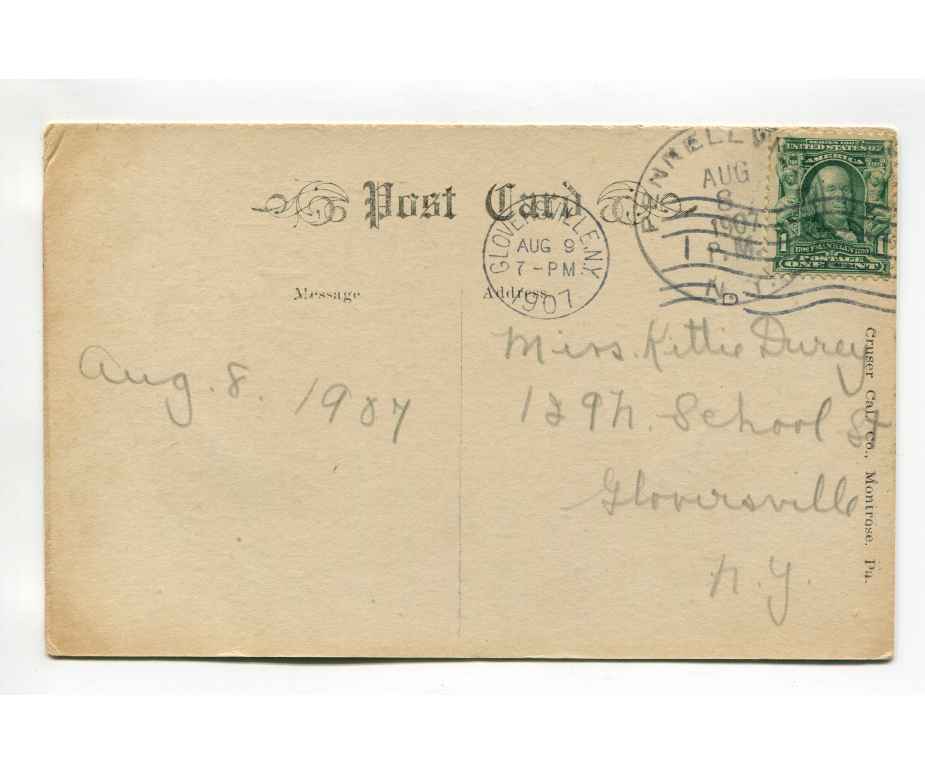 Post Card
PENNELLV
AUG
8
1907
P M
N.Y.
GLOVERSVILLE, N.Y.
AUG 9
7-PM
1907
SERIES 1902
UNITED STATES OF
AMERICA
FRANKLIN
POSTAGE
1 1
ONE CENT
Message
Address
Aug. 8. 1907
Miss. Kittie Durey
129 N. School St
Gloversville
N.Y.
Cruser Cal. Co., Montrose, Pa.